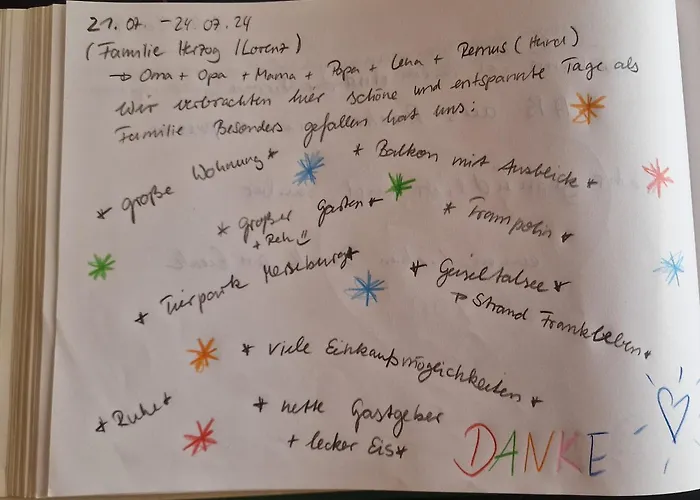 21.07. – 24.07.24
(Familie Herzog / Lorenz)
→ Oma + Opa + Mama + Papa + Lena + Remus (Hund)
Wir verbrachten hier schöne und entspannte Tage als
Familie Besonders gefallen hat uns:
* große Wohnung *
* Balkon mit Ausblick *
* großer Garten *
+ Reh !!
* Trampolin *
* Tierpark Merseburg *
* Geiseltalsee *
→ Strand Frankleben *
* viele Einkaufsmögeichkeiten *
* Ruhe *
* nette Gastgeber
+ lecker Eis *
DANKE